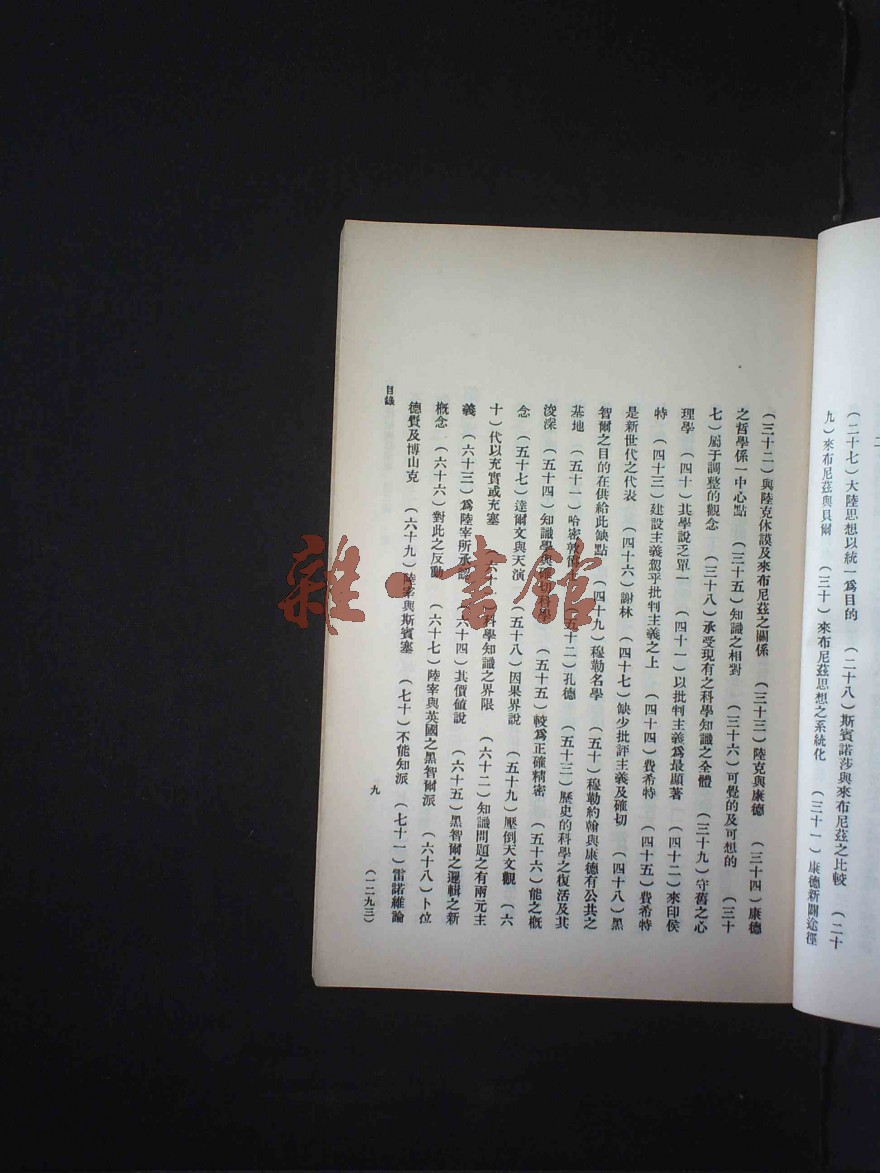 二
（二十七）大陸思想以統一爲目的　（二十八）斯賓諾莎與來布尼茲之比較　（二十
九）來布尼茲與貝爾　（三十）來布尼茲思想之系統化　（三十一）康德新闢途徑
（三十二）與陸克休謨及來布尼茲之關係　（三十三）陸克與康德　（三十四）康德
之哲學係一中心點　（三十五）知識之相對　（三十六）可覺的及可想的　（三十
七）屬于調整的觀念　（三十八）承受現有之科學知識之全體　（三十九）守舊之心
理學　（四十）其學說乏單一　（四十一）以批判主義爲最顯著　（四十二）來印侯
特　（四十三）建設主義駕乎批判主義之上　（四十四）費希特　（四十五）費希特
是新世代之代表　（四十六）謝林　（四十七）缺少批評主義及確切　（四十八）黑
智爾之目的在供給此缺點　（四十九）穆勒名學　（五十）穆勒約翰與康德有公共之
基地　（五十一）哈密敦　（五十二）孔德　（五十三）歷史的科學之復活及其
浚深　（五十四）知識學與確切科學　（五十五）較爲正確精密　（五十六）能之概
念　（五十七）達爾文與天演　（五十八）因果界說　（五十九）壓倒天文觀　（六
十）代以充實或充塞　（六十一）科學知識之界限　（六十二）知識問題之有兩元主
義　（六十三）爲陸宰所承認　（六十四）其價値說　（六十五）黑智爾之邏輯之新
概念　（六十六）對此之反動　（六十七）陸宰與英國之黑智爾派　（六十八）卜位
德賢及博山克　（六十九）陸宰與斯賓塞　（七十）不能知派　（七十一）雷諾維論
目錄
九
（一二九三）
雜·書館